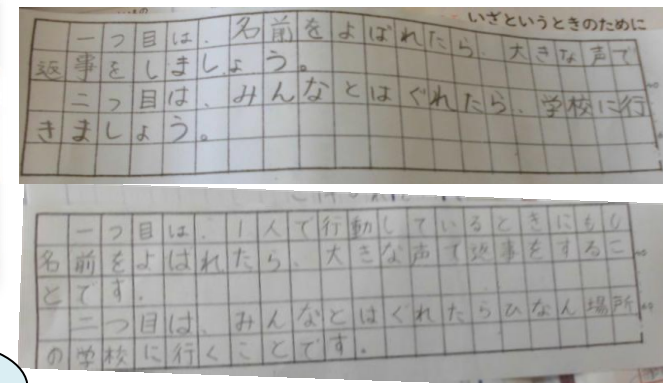 いざというときのために
一つ目は、名前をよばれたら、大きな声で
返事をしましょう。
二つ目は、みんなとはぐれたら、学校に行
きましょう。
一つ目は、1人で行動しているときにもし
名前をよばれたら、大きな声で返事をするこ
とです。
二つ目は、みんなとはぐれたらひなん場所
の学校に行くことです。